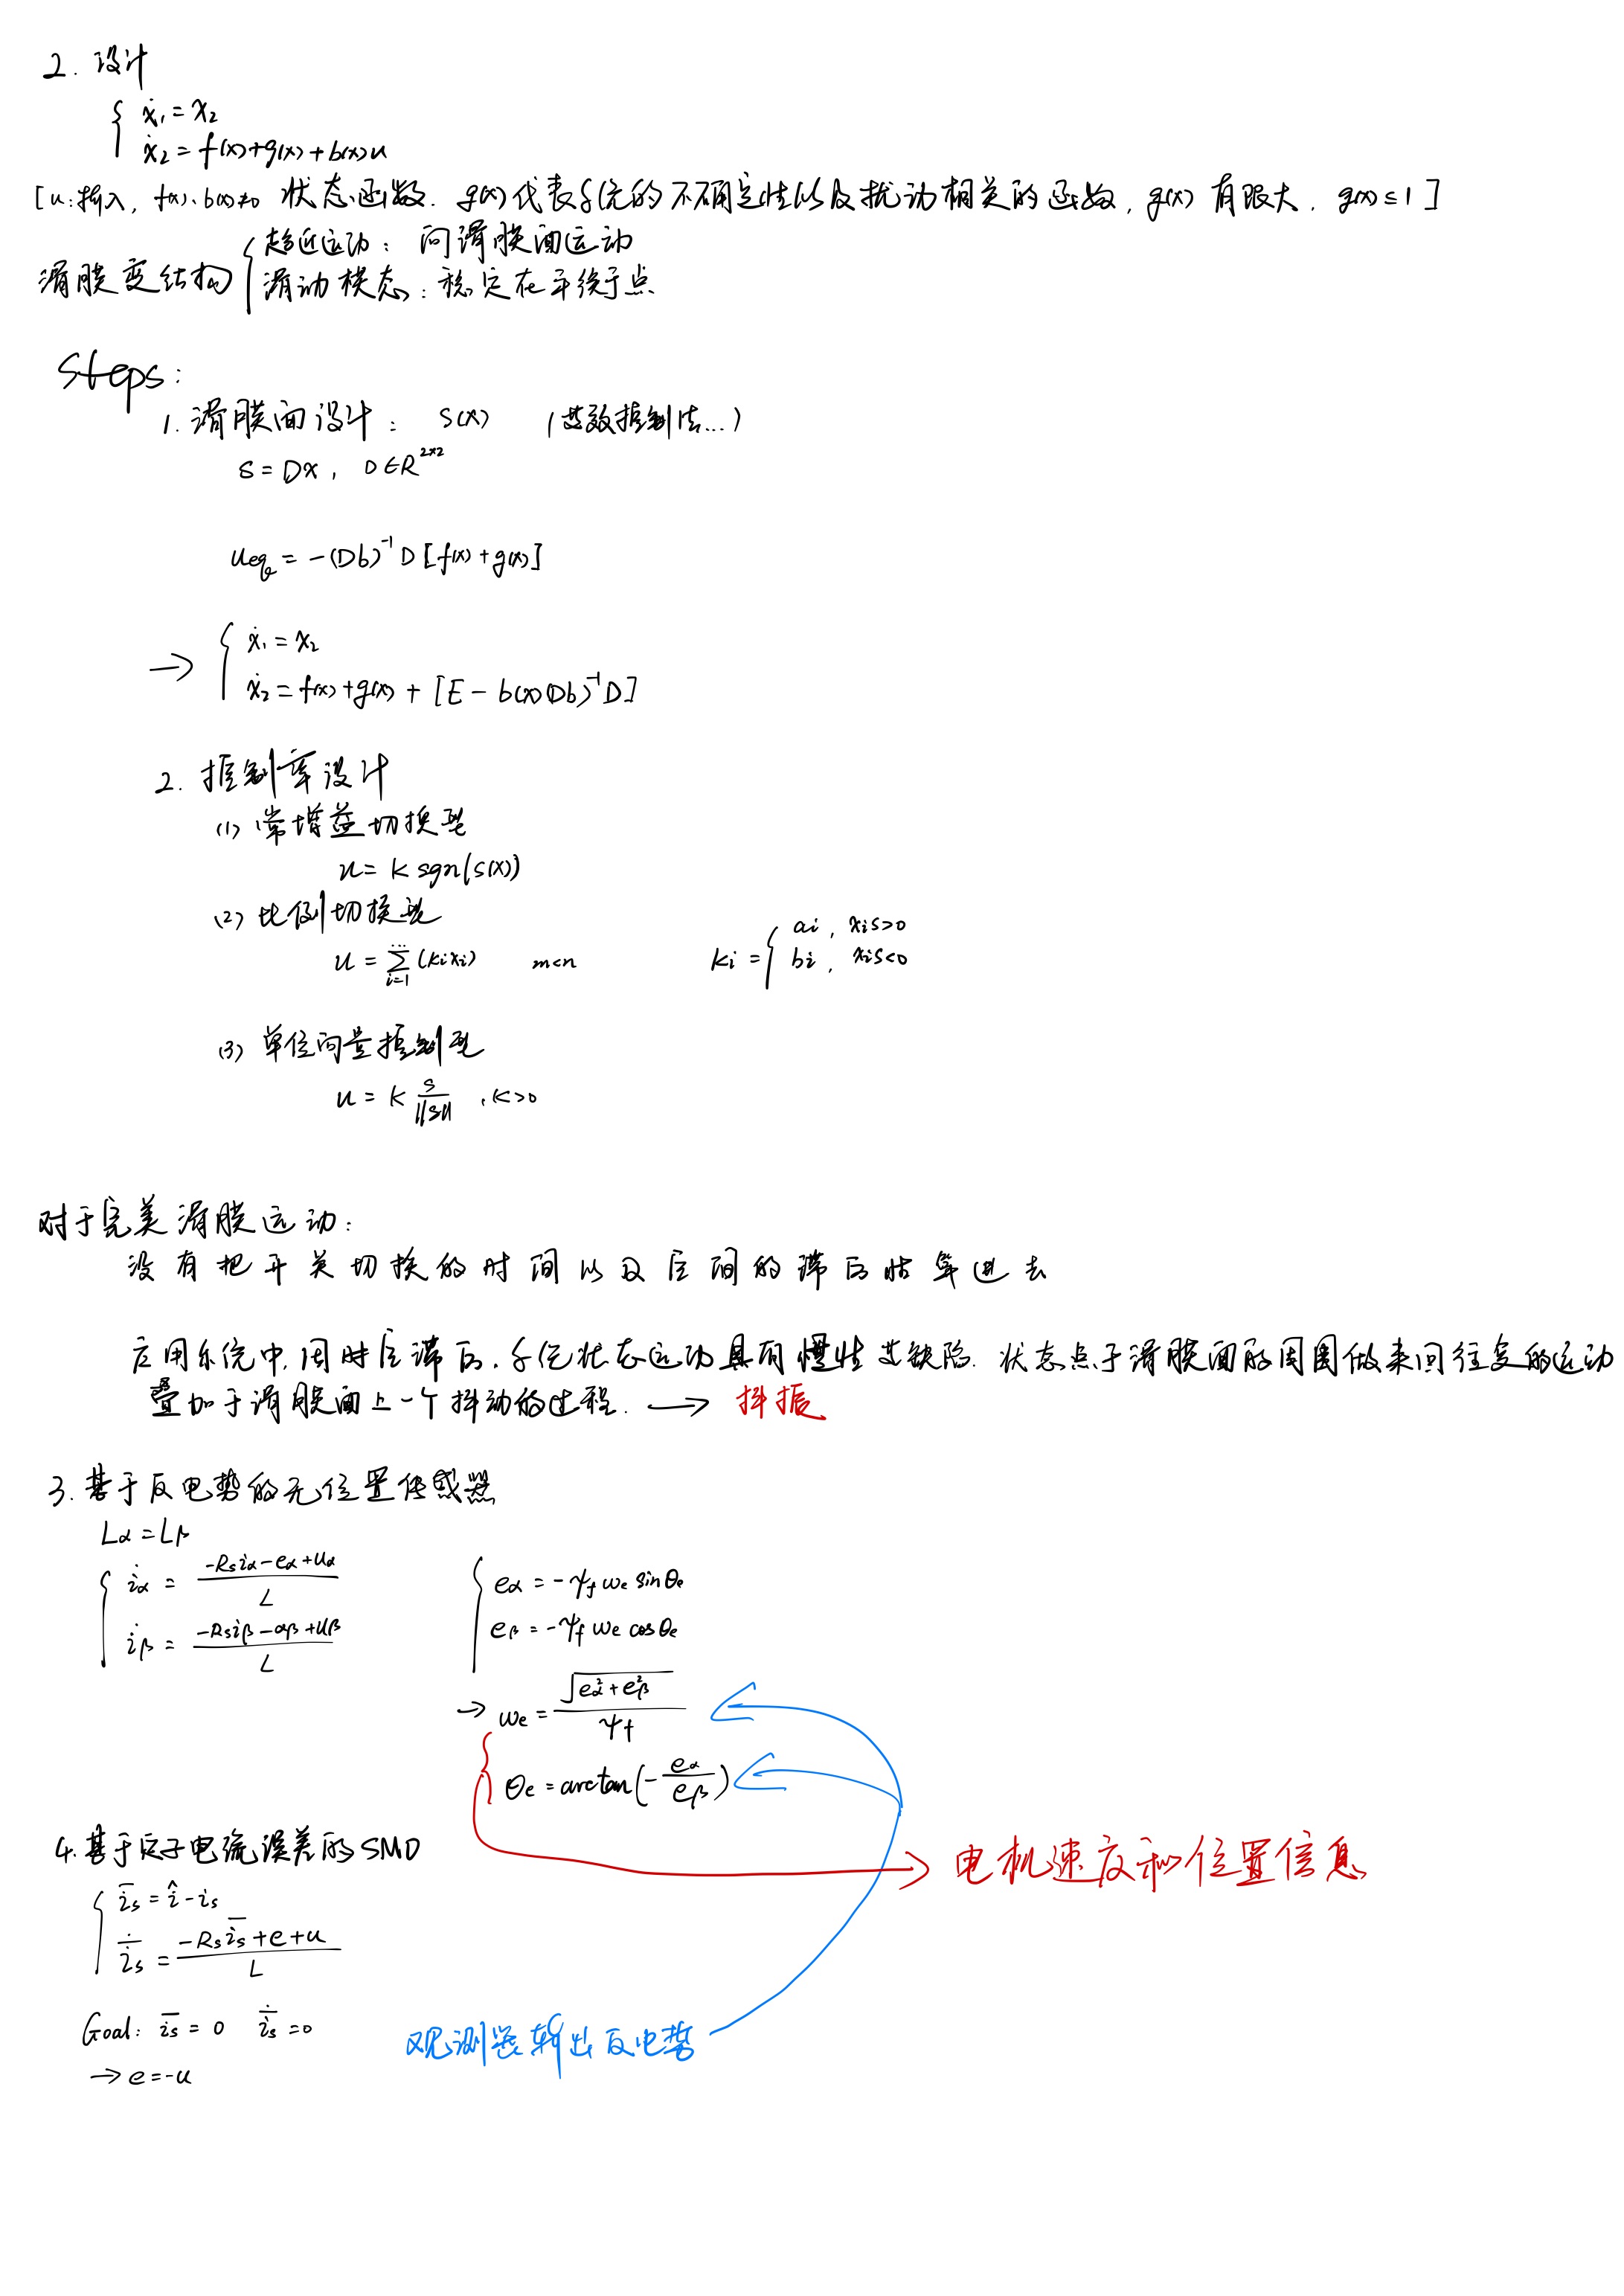 2. 设计
{ ẋ₁ = x₂
ẋ₂ = f(x)+g(x)+b(x)u
[u:输入, f(x)、b(x)≠0 状态函数. g(x)代表系统的不确定性以及扰动相关的函数, g(x) 有限大, g(x) ≤ 1 ]
滑膜变结构 { 趋近运动: 向滑膜面运动
滑动模态: 稳定在平衡点
Steps:
1. 滑膜面设计: S(x) (等效控制法...)
S = Dx, D∈R^{2×2}
u_eq = -(Db)^{-1} D [f(x)+g(x)]
→ { ẋ₁ = x₂
ẋ₂ = f(x)+g(x) + [E - b(x)(Db)^{-1}D]
2. 控制率设计
(1) 常增益切换型
u = k sgn(s(x))
(2) 比例切换型
u = Σ_{i=1}^{...} (kᵢxᵢ) m<n kᵢ = { aᵢ, xᵢs>0
bᵢ, xᵢs<0
(3) 单位向量控制型
u = k s/‖s‖ , k>0
对于完美滑膜运动:
没有把开关切换的时间以及空间的滞后性算进去
应用系统中, 因时空滞后, 系统状态运动具有惯性等缺陷. 状态点于滑膜面的周围做来回往复的运动
叠加于滑膜面上一个抖动的过程. → 抖振
3. 基于反电势的无位置传感器
Lα = Lβ
{ i̇α = (-Rsiα - eα + uα)/L
i̇β = (-Rsiβ - αβ + uβ)/L
{ eα = -ψf ωe sinθe
eβ = -ψf ωe cosθe
→ ωe = √(eα² + eβ²)/ψf
θe = arctan(-eα/eβ)
→ 电机速度和位置信息
4. 基于定子电流误差的SMO
{ i̅s = î - is
i̅̇s = (-Rs i̅s + e + u)/L
Goal: i̅s = 0 i̅̇s = 0
→ e = -u
观测器输出反电势